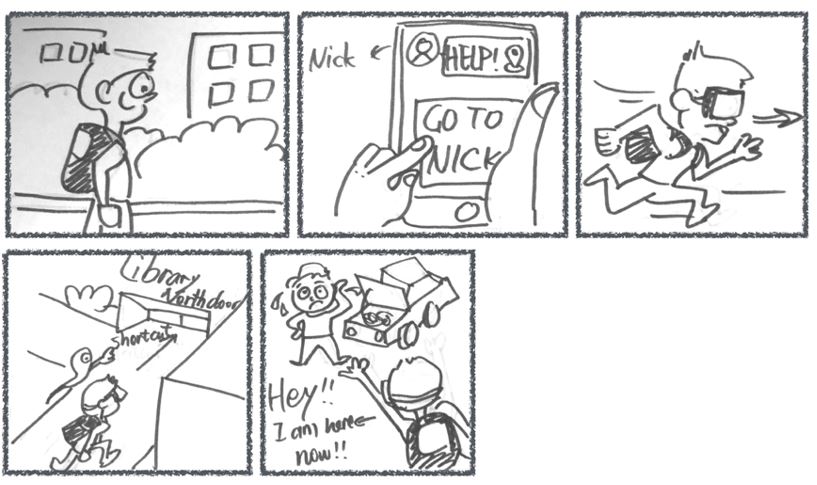 Nick
HELP!
GO TO
NICK
Library
North door
shortcut
Hey!!
I am here
now!!